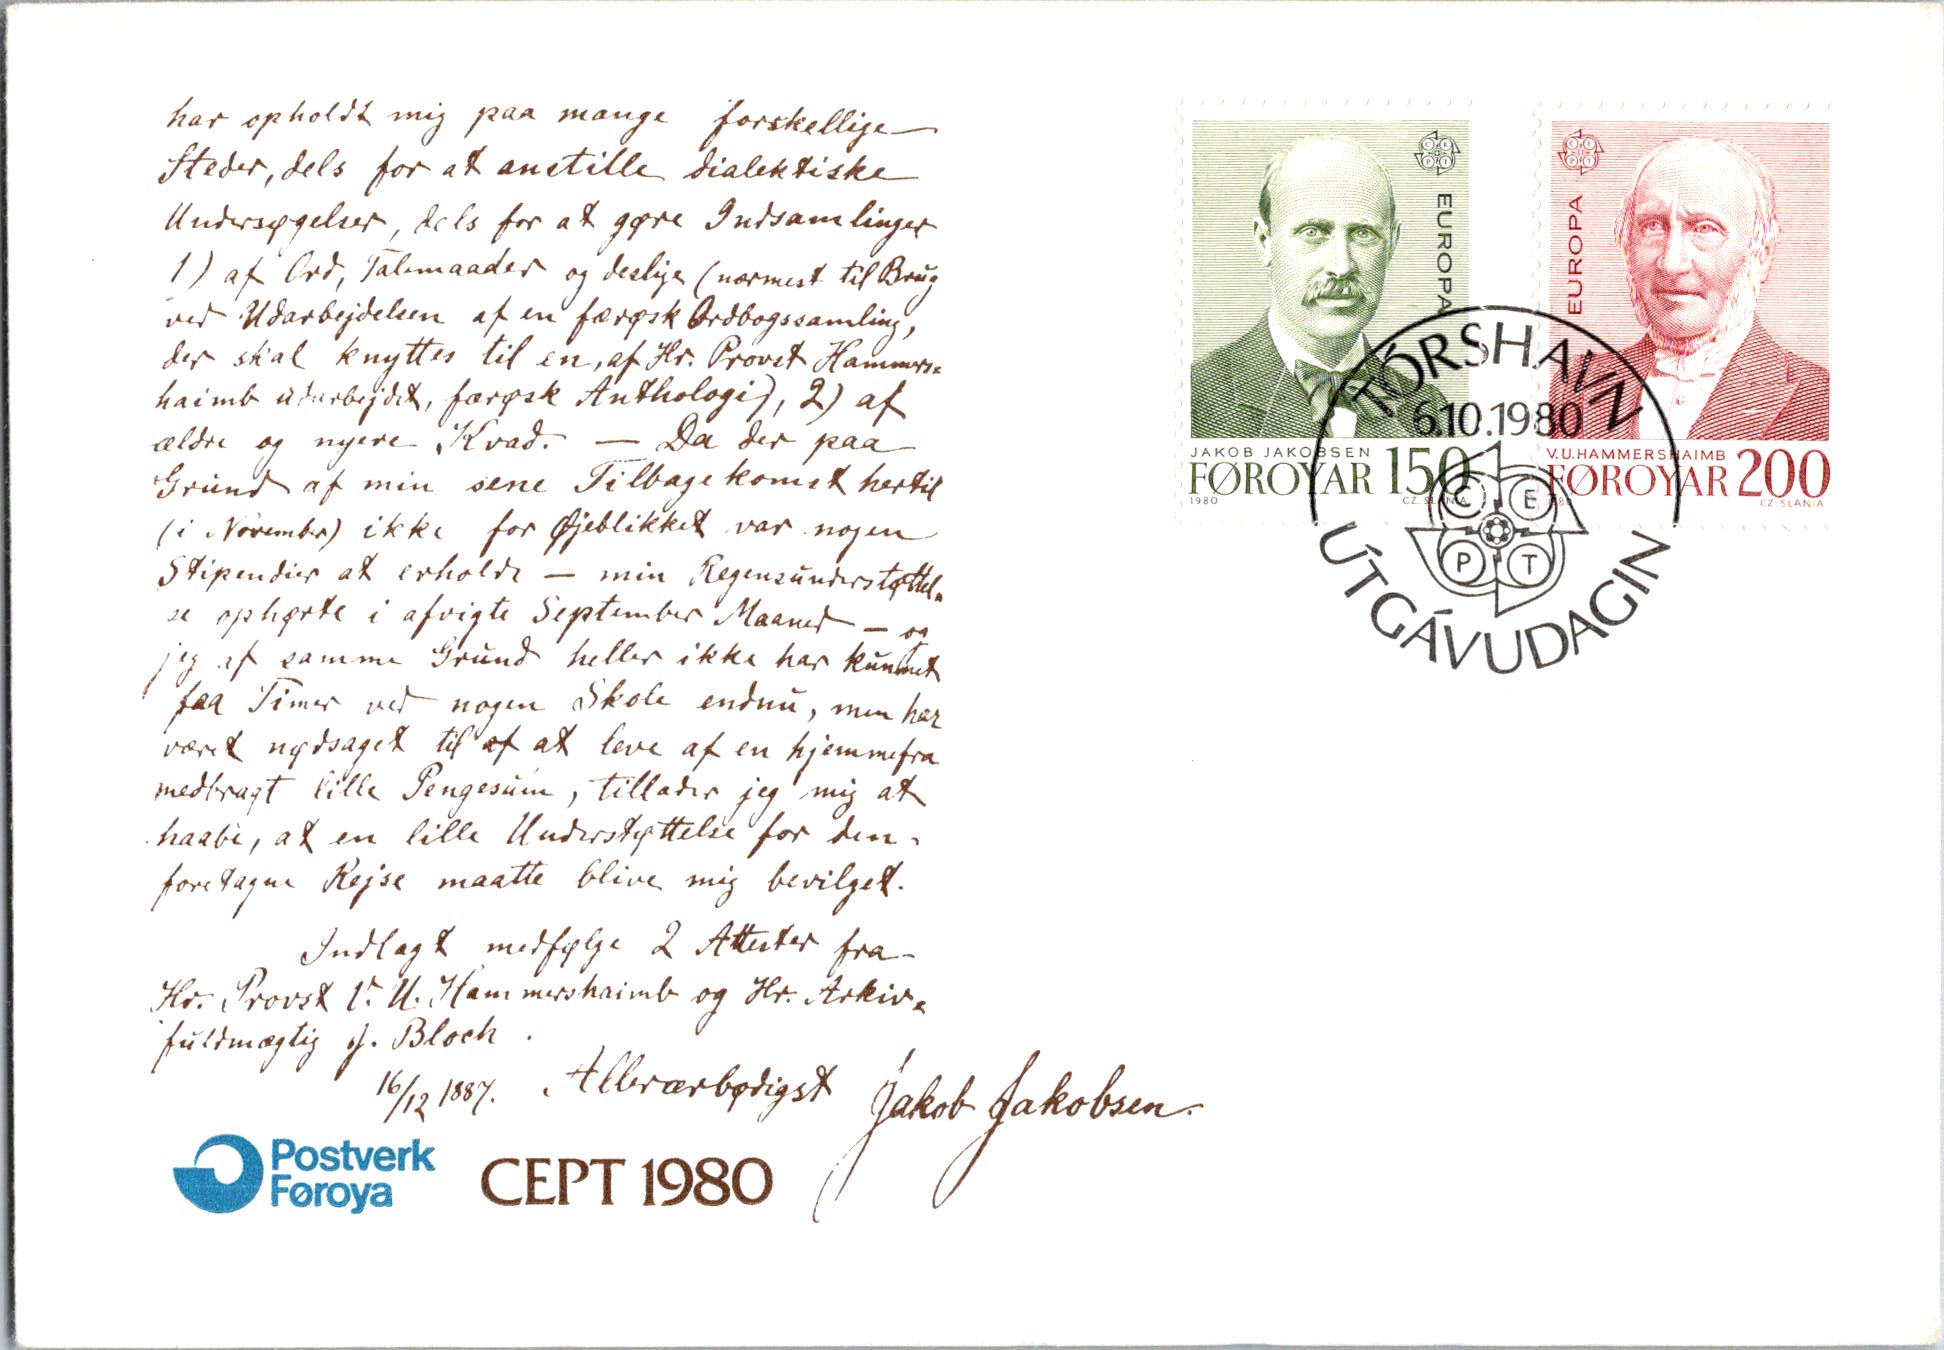 har opholdt mig paa mange forskellige
Steder, dels for at anstille dialektiske
Undersøgelser, dels for at gøre Indsamlinger
1) af Ord, Talemaader og deslige (nærmest til Brug
ved Udarbejdelsen af en færøsk Ordbogssamling,
der skal knyttes til en, af Hr. Provst Hammers-
haimb udarbejdet, færøsk Anthologi), 2) af
ældre og nyere Kvad. — Da der paa
Grund af min sene Tilbagekomst hertil
(i November) ikke for Øjeblikket var nogen
Stipendier at erholde — min Regensunderstøttel-
se ophørte i afvigte September Maaned — og
jeg af samme Grund heller ikke har kunnet
faa Timer ved nogen Skole endnu, men har
været nødsaget til af at leve af en hjemmefra
medbragt lille Pengesum, tillader jeg mig at
haabe, at en lille Understøttelse for den
foretagne Rejse maatte blive mig bevilget.
Indlagt medfølge 2 Attester fra
Hr. Provst V. U. Hammershaimb og Hr. Arkiv-
fuldmægtig J. Bloch.
16/12 1887. Allerærbødigst Jakob Jakobsen.
Postverk
Føroya
CEPT 1980
CEPT
EUROPA
JAKOB JAKOBSEN
FØROYAR 150
1980 CZ. SLANIA
CEPT
EUROPA
V.U. HAMMERSHAIMB
FØROYAR 200
1980 CZ. SLANIA
TÓRSHAVN
6.10.1980
CEPT
ÚTGÁVUDAGIN